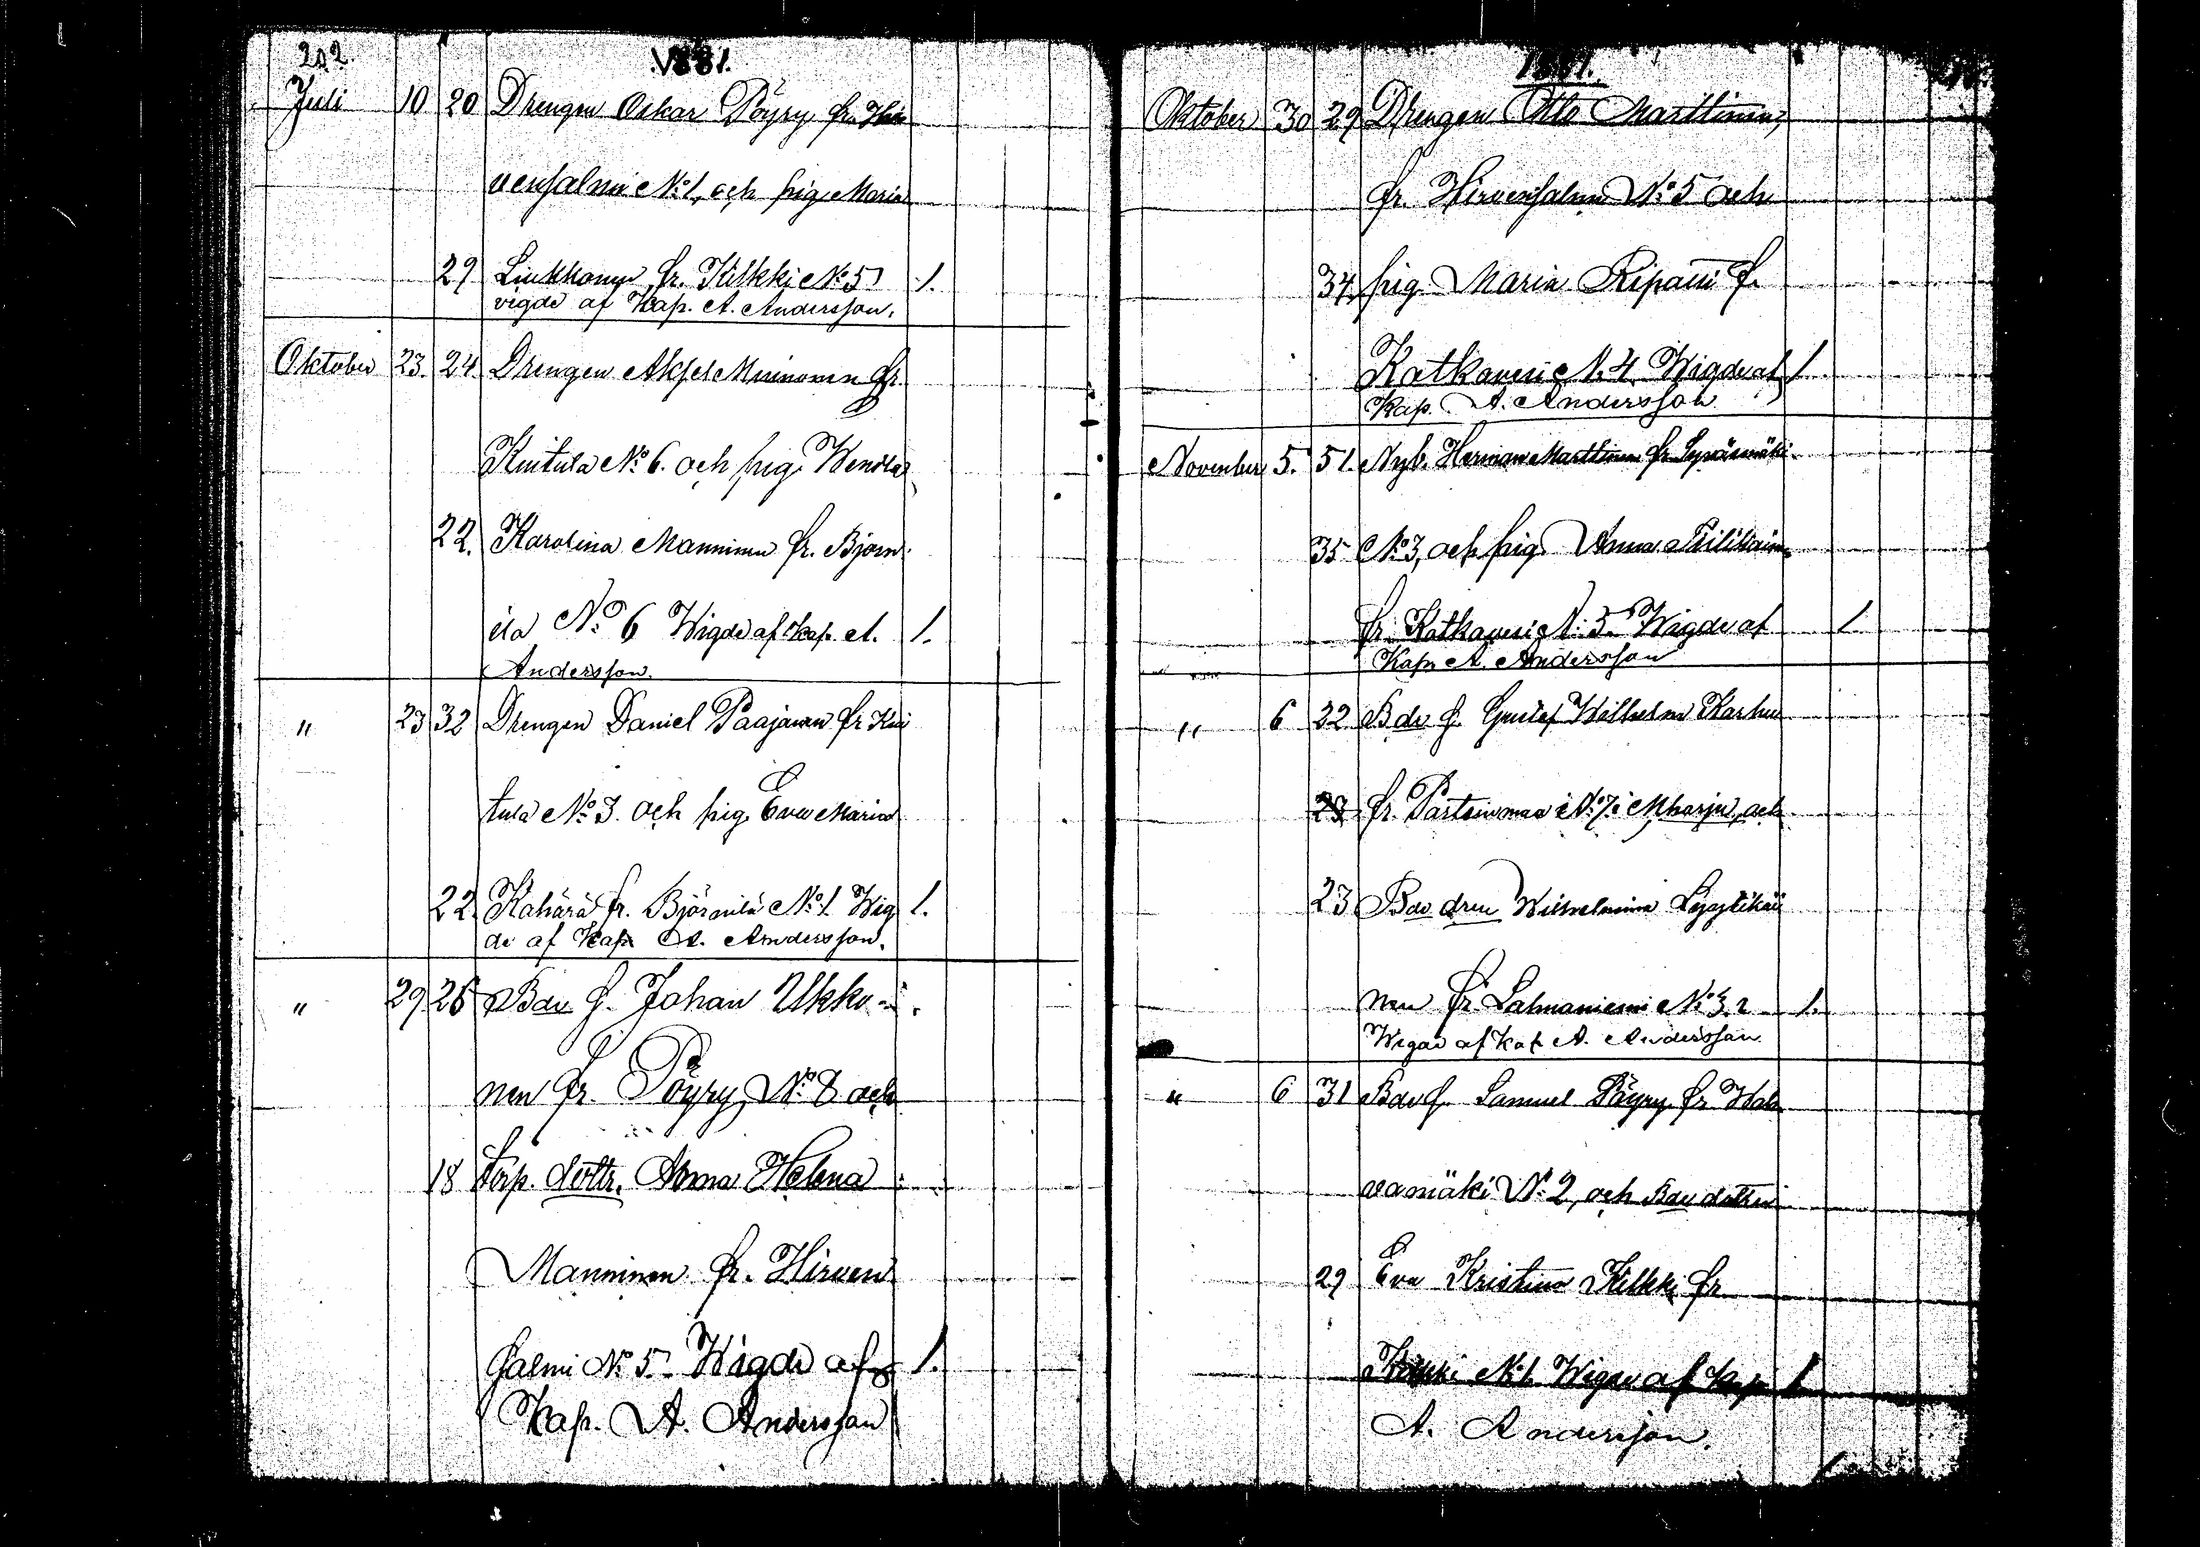 202.
1881.
Juli 10 20 Drengen Oskar Pöyry fr. Hir
vensalmi No 1, och pig. Maria
29 Liukkonen fr. Kilkki No 5 1.
vigde af Kap. A. Andersson.
Oktober 23. 24. Drengen Aksel Muinonen fr.
Kuitula No 6. och pig. Wendla
22. Karolina Manninen fr. Björn
ila No 6 Wigde af Kap. A. 1.
Andersson.
" 23 32 Drengen Daniel Paajanen fr Kui
tula No 3. och pig. Eva Maria
22. Kähärä fr. Björnilä No 1. Wig 1.
de af Kap A. Andersson.
" 29. 25 Bde s. Johan Ukko
nen fr. Pöyry, No 8 och
18 Torp. dottr. Anna Helena
Manninen fr. Hirven
salmi No 5. Wigde af 1.
Kap. A. Andersson
1881.
Oktober 30 29 Drengen Otto Marttinen,
fr. Hirvensalmi No 5 och
34. pig. Maria Ripatti f.
Katkavesi N. 4. Wigde af 1.
Kap. A. Andersson
November 5. 51. Nyb. Herman Marttinen fr Syväsmäki
35 No 3, och pig. Anna
fr. Katkavesi N: 3. Wigde af 1
Kap A. Andersson
" 6 32 Bde s. Gustaf Wilhelm Karhu
23 fr. Partsimaa N: 7. och
23 Bde dren Wilhelmina Lyytikäi
nen fr. Lahnaniemi No 3. 1.
Wigde af Kap A. Andersson
" 6 31 Bde s. Samuel Pöyry fr Hal
vamäki No 2, och Bde dottren
29 Eva Kristina Kilkki fr
Kilkki No 1. Wigde af Kap 1
A. Andersson.